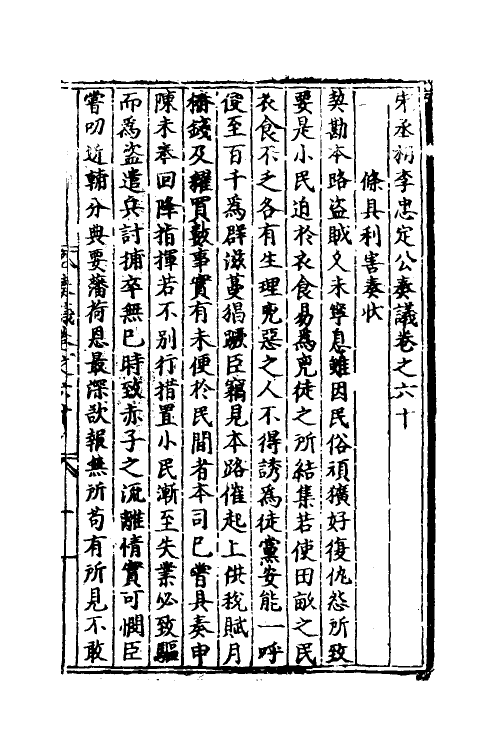 宋丞相李忠定公奏議卷之六十
條具利害奏狀
契勘本路盜賊久未寧息雖因民俗頑獷好復仇怨所致
要是小民迫於衣食易為兇徒之所結集若使田畝之民
衣食不乏各有生理兇惡之人不得誘為徒黨安能一呼
便至百千為群滋蔓猖蹶臣竊見本路催起上供稅賦月
樁錢及糴買數事實有未便於民間者本司已嘗具奏申
陳未奉回降指揮若不別行措置小民漸至失業必致驅
而為盜遣兵討捕卒無已時致赤子之流離情實可憫臣
嘗叨近輔分典要藩荷恩最深欲報無所苟有所見不敢